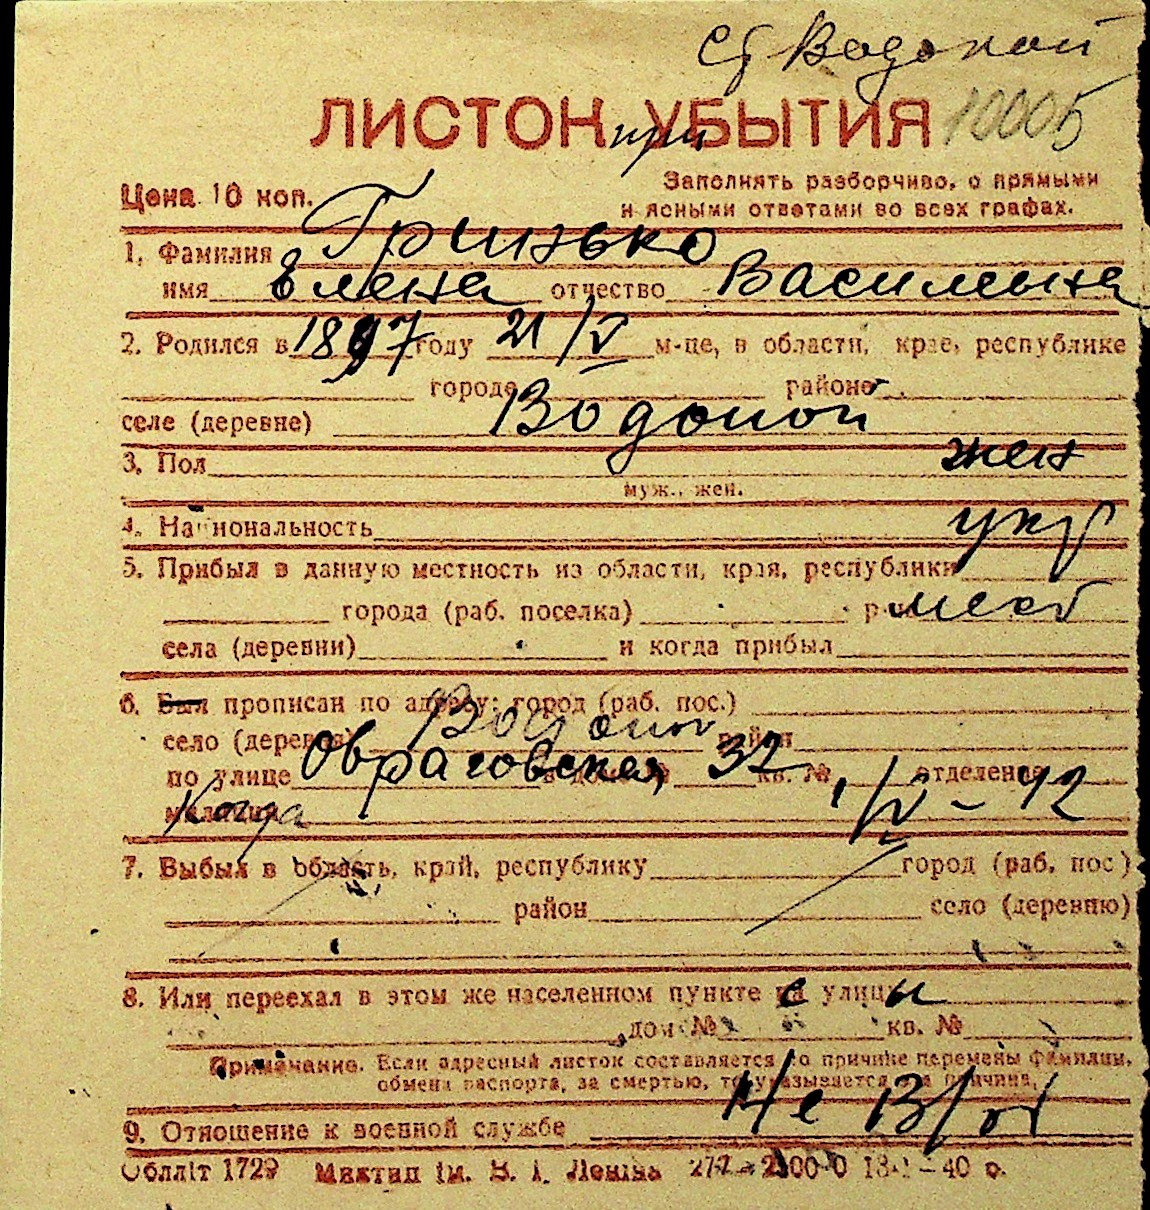 ст Водопой
ЛИСТОК при УБЫТИЯ 10005
Цена 10 коп. Заполнять разборчиво, с прямыми
и ясными ответами во всех графах.
1. Фамилия Гринько
имя Елена отчество Васильевна
2. Родился в 1897 году 21/V м-це, в области, крае, республике
городе районе
селе (деревне) Водопой
3. Пол жен
муж., жен.
4. Национальность укр
5. Прибыл в данную местность из области, края, республики
города (раб. поселка) мест
села (деревни) и когда прибыл
6. Был прописан по адресу: город (раб. пос.)
село (деревня) Водопой район
по улице Овраговская 32 кв. № отделение
милиции Когда 1/IV - 42
7. Выбыл в область, край, республику город (раб. пос)
район село (деревню)
8. Или переехал в этом же населенном пункте с улицы
дом № кв. №
Примечание. Если адресный листок составляется по причине перемены фамилии,
обмена паспорта, за смертью, то указывается эта причина.
9. Отношение к военной службе Не в/об
Обллiт 1729 Миктип iм. В. I. Ленiна